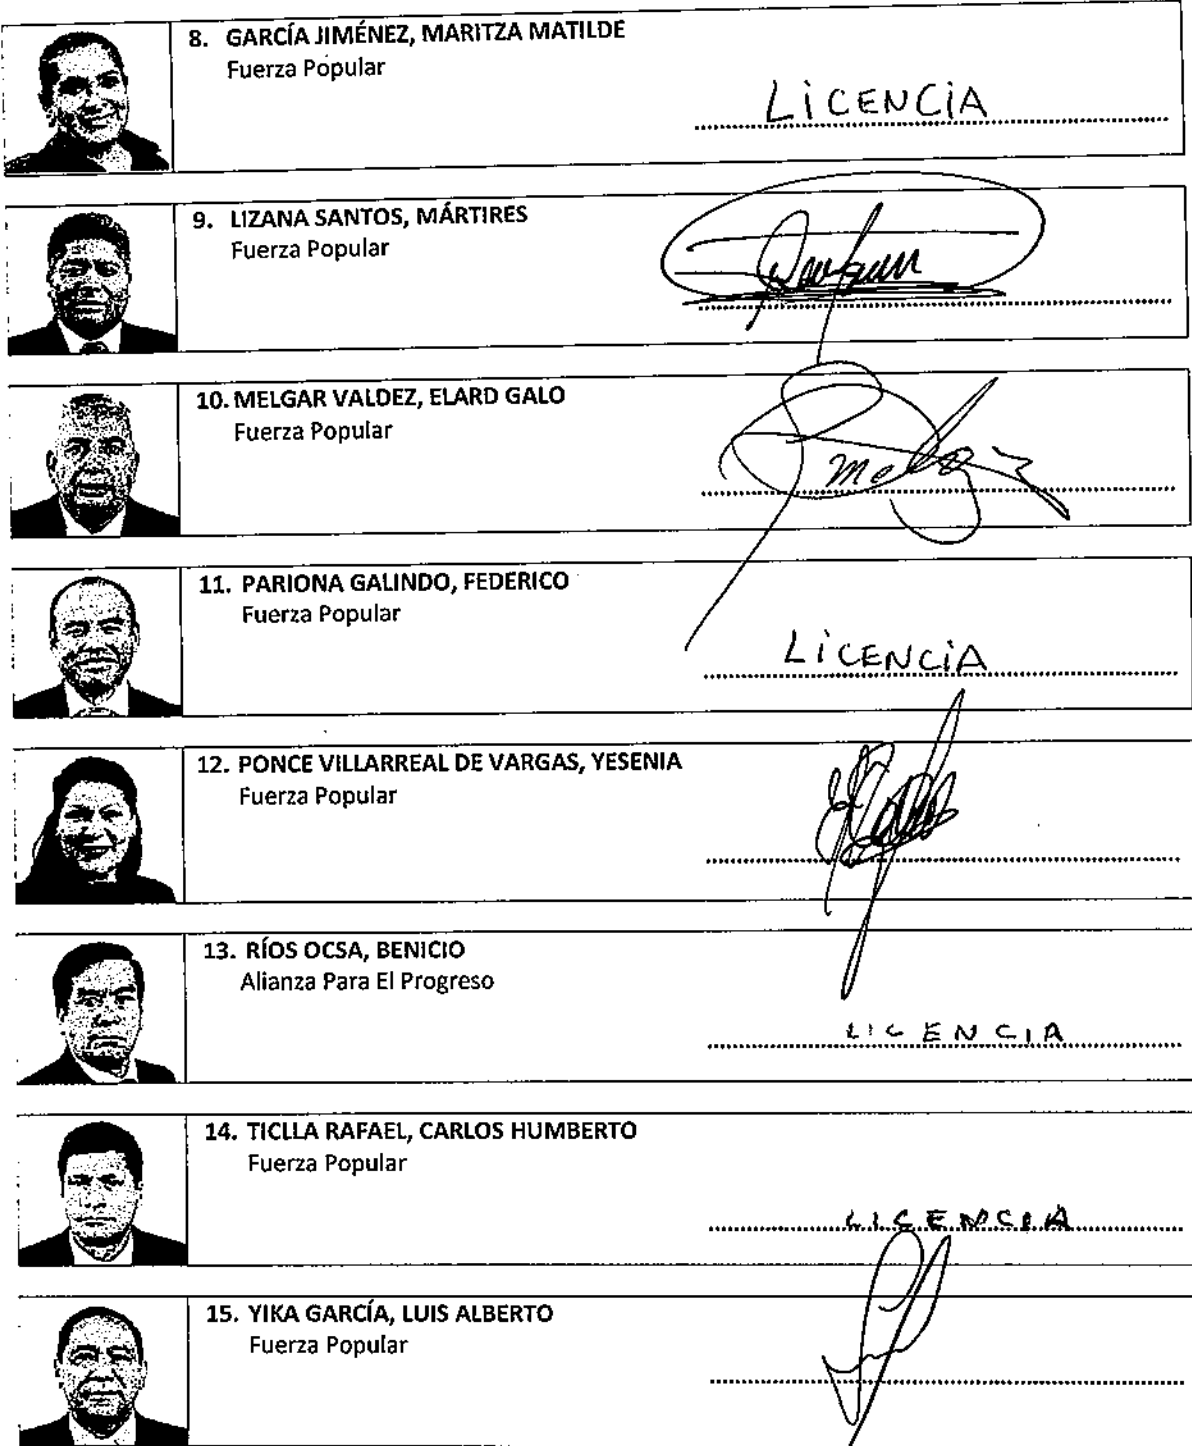 8. GARCÍA JIMÉNEZ, MARITZA MATILDE
Fuerza Popular
LiCENCiA
9. LIZANA SANTOS, MÁRTIRES
Fuerza Popular
10. MELGAR VALDEZ, ELARD GALO
Fuerza Popular
Melgar
11. PARIONA GALINDO, FEDERICO
Fuerza Popular
LiCENCiA
12. PONCE VILLARREAL DE VARGAS, YESENIA
Fuerza Popular
13. RÍOS OCSA, BENICIO
Alianza Para El Progreso
LICENCIA
14. TICLLA RAFAEL, CARLOS HUMBERTO
Fuerza Popular
LICENCIA
15. YIKA GARCÍA, LUIS ALBERTO
Fuerza Popular